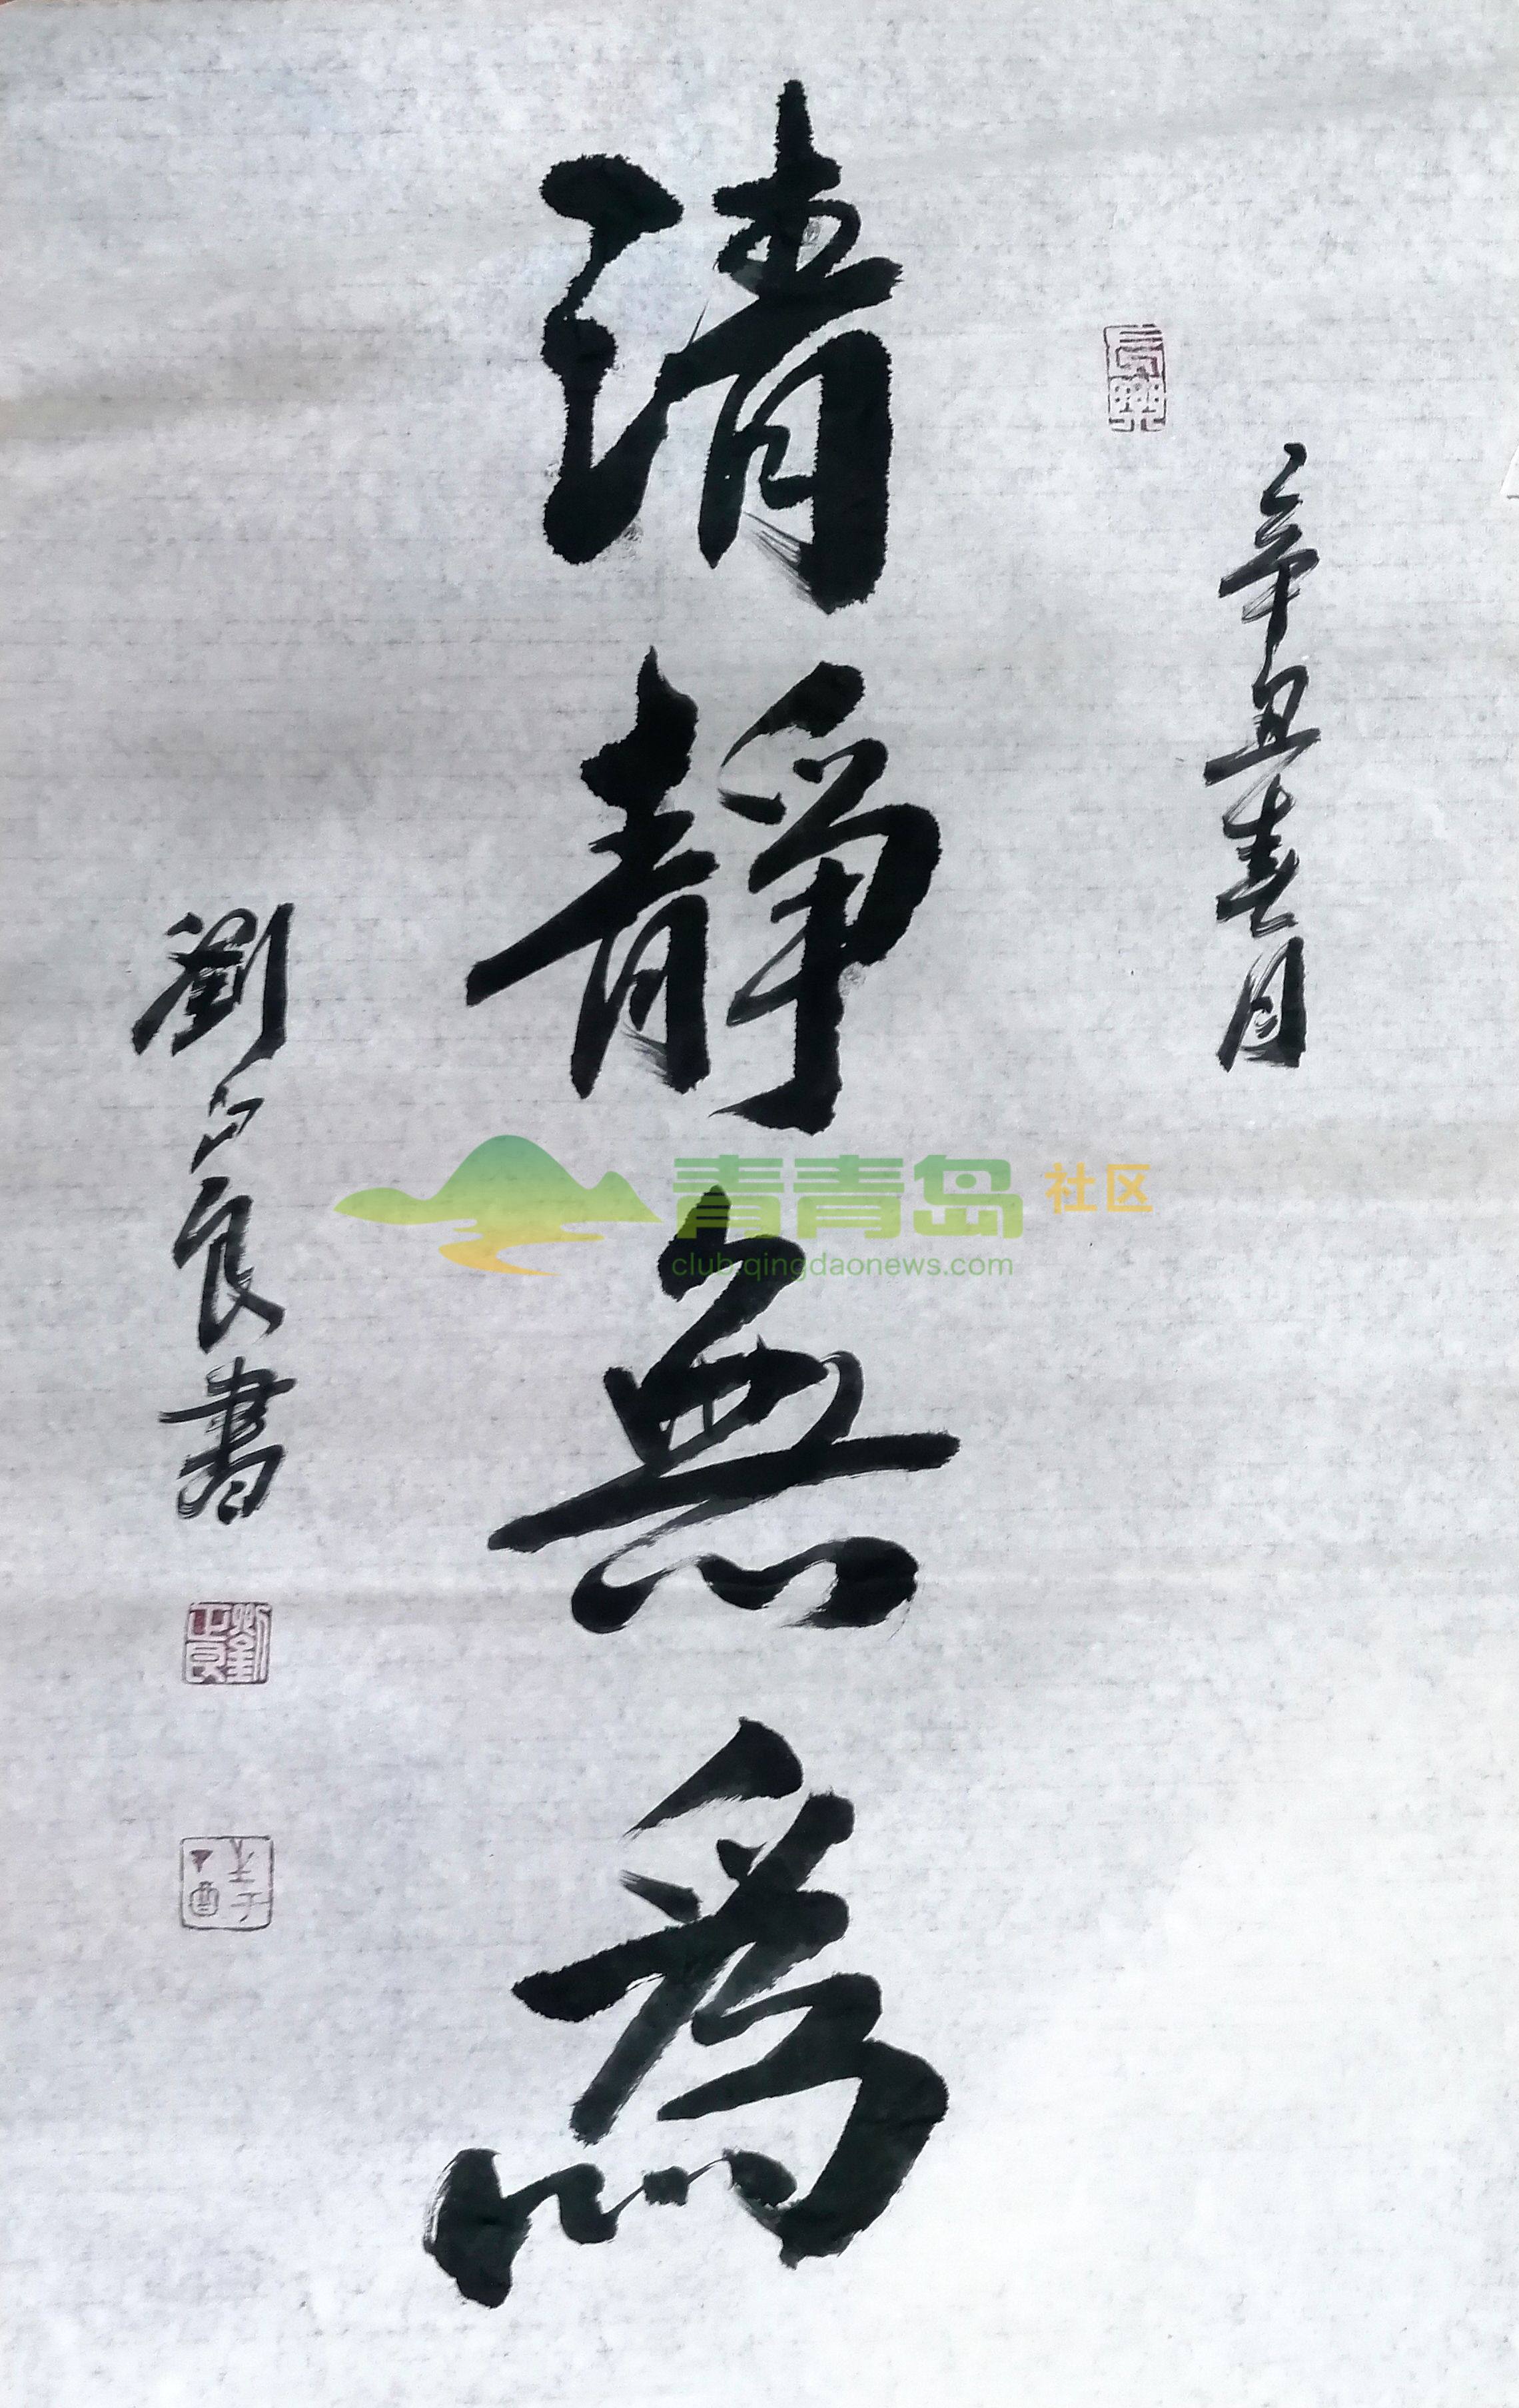 辛丑春月
清靜無爲
劉正良書
青青岛社区
club.qingdaonews.com